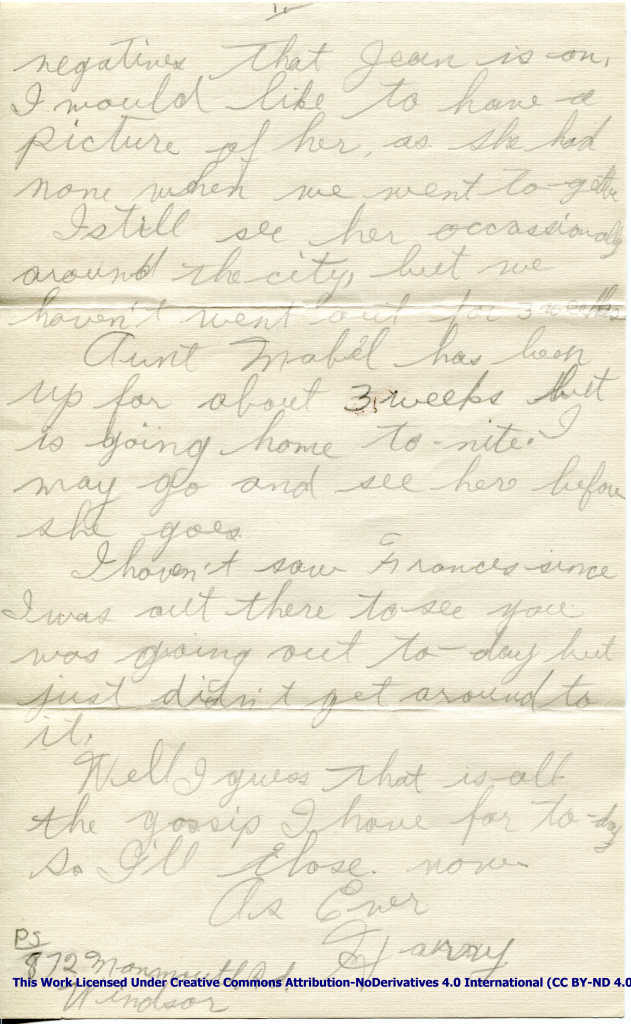 negatives that Jean is on,
I would like to have a
picture of her, as she had
none when we went to-gether
I still see her occassionally
around the city, but we
haven't went out for 3 weeks
Aunt Mabel has been
up for about 3 weeks but
is going home to-nite. I
may go and see here before
she goes
I haven't saw Frances since
I was out there to see you
was going out to-day but
just didn't get around to
it.
Well I guess that is all
the gossip I have for to-day
So I'll close now
As Ever
Harry
PS
872 Monmouth Rd.
This Work Licensed Under Creative Commons Attribution-NoDerivatives 4.0 International (CC BY-ND 4.0
Windsor